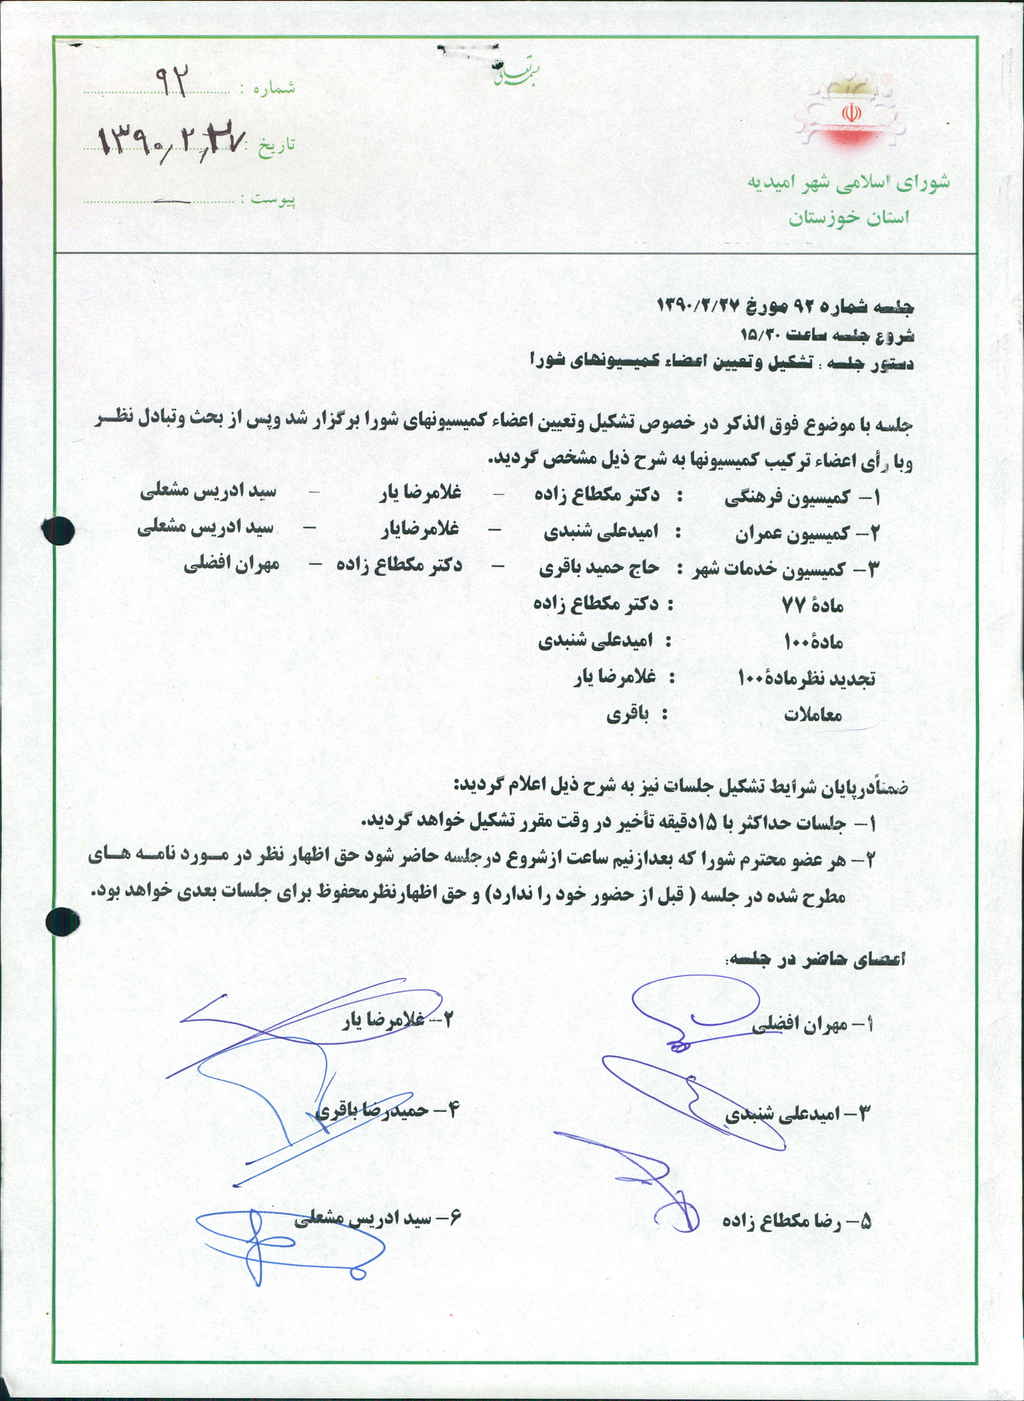 بسمه تعالی
شماره : ۹۲
تاریخ : ۱۳۹۰/۲/۲۷
پیوست : —
شورای اسلامی شهر امیدیه
استان خوزستان
جلسه شماره ۹۲ مورخ ۱۳۹۰/۲/۲۷
شروع جلسه ساعت ۱۵/۳۰
دستور جلسه : تشکیل وتعیین اعضاء کمیسیونهای شورا
جلسه با موضوع فوق الذکر در خصوص تشکیل وتعیین اعضاء کمیسیونهای شورا برگزار شد وپس از بحث وتبادل نظر
وبا رأی اعضاء ترکیب کمیسیونها به شرح ذیل مشخص گردید.
۱- کمیسیون فرهنگی : دکتر مکطاع زاده - غلامرضا یار - سید ادریس مشعلی
۲- کمیسیون عمران : امیدعلی شنبدی - غلامرضایار - سید ادریس مشعلی
۳- کمیسیون خدمات شهر : حاج حمید باقری - دکتر مکطاع زاده - مهران افضلی
مادۀ ۷۷ : دکتر مکطاع زاده
مادۀ۱۰۰ : امیدعلی شنبدی
تجدید نظرمادۀ۱۰۰ : غلامرضا یار
معاملات : باقری
ضمناًدرپایان شرایط تشکیل جلسات نیز به شرح ذیل اعلام گردید:
۱- جلسات حداکثر با ۱۵دقیقه تأخیر در وقت مقرر تشکیل خواهد گردید.
۲- هر عضو محترم شورا که بعدازنیم ساعت ازشروع درجلسه حاضر شود حق اظهار نظر در مورد نامه های
مطرح شده در جلسه ( قبل از حضور خود را ندارد) و حق اظهارنظرمحفوظ برای جلسات بعدی خواهد بود.
اعضای حاضر در جلسه:
۱- مهران افضلی ۲- غلامرضا یار
۳- امیدعلی شنبدی ۴- حمیدرضا باقری
۵- رضا مکطاع زاده ۶- سید ادریس مشعلی